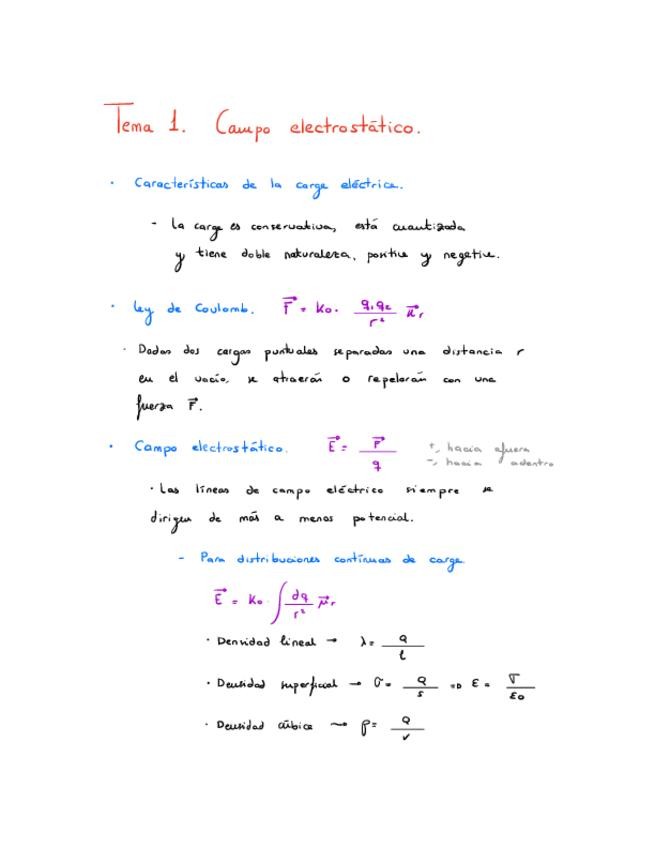 Tema 1. Campo electrostático.
· Características de la carga eléctrica.
- La carga es conservativa, está cuantizada
y tiene doble naturaleza, positiva y negativa.
· Ley de Coulomb. F⃗ = K₀ · q₁q₂ / r² μ⃗r
· Dadas dos cargas puntuales separadas una distancia r
en el vacío, se atraerán o repelerán con una
fuerza F⃗.
· Campo electrostático. E⃗ = F⃗ / q
+, hacia afuera
-, hacia adentro
· Las líneas de campo eléctrico siempre se
dirigen de más a menos potencial.
- Para distribuciones contínuas de carga
E⃗ = K₀ · ∫ dq / r² μ⃗r
· Densidad lineal → λ = Q / l
· Densidad superficial → σ = Q / s => E = σ / ε₀
· Densidad cúbica → ρ = Q / v